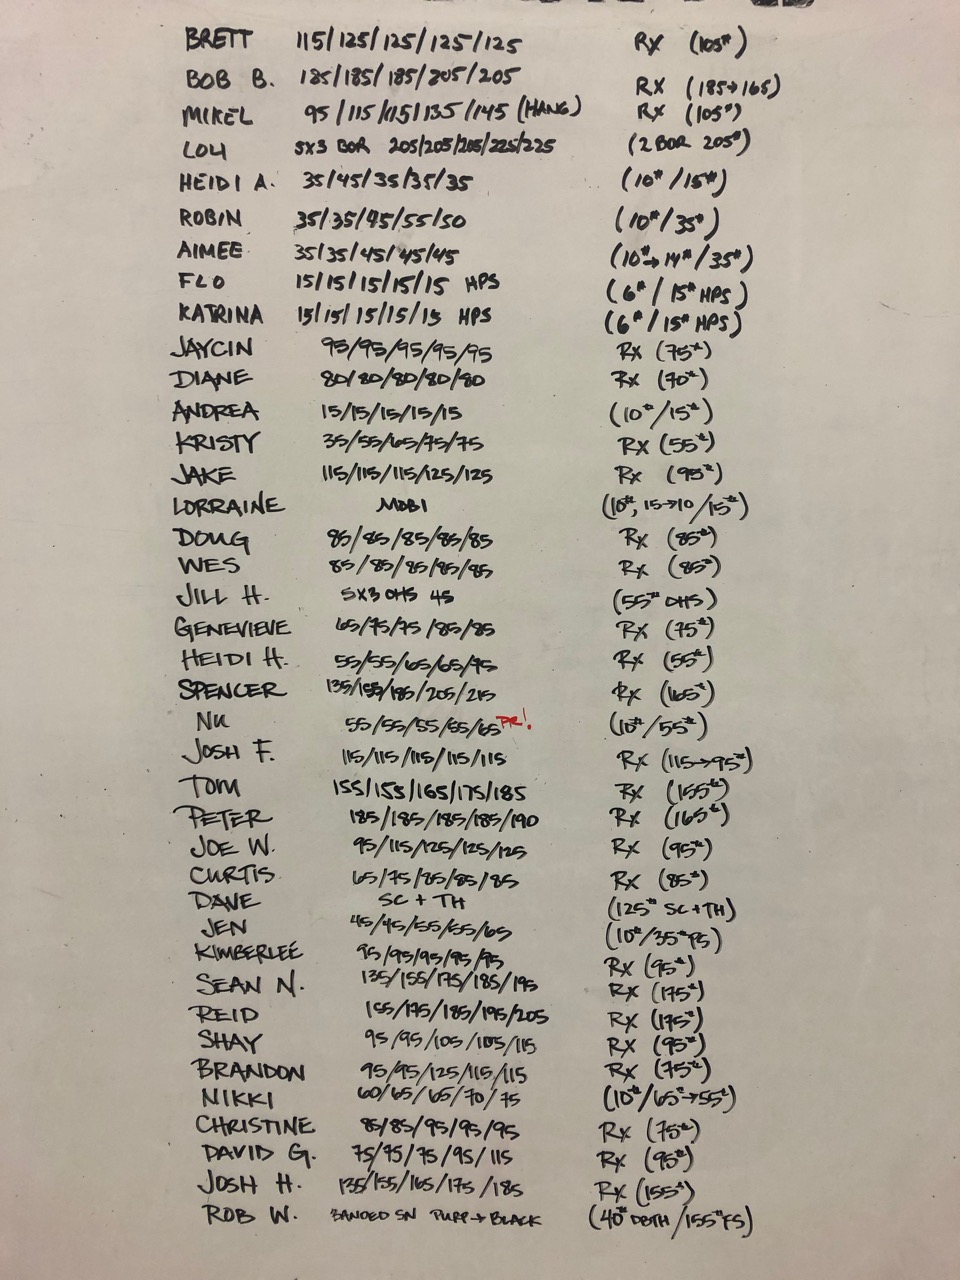 BRETT 115/125/125/125/125 RX (105#)
BOB B. 185/185/185/205/205 RX (185→165)
MIKEL 95/115/115/135/145 (HANG) RX (105#)
LOU 5X3 BOR 205/205/205/225/225 (2 BOR 205#)
HEIDI A. 35/45/35/35/35 (10#/15#)
ROBIN 35/35/45/55/50 (10#/35#)
AIMEE 35/35/45/45/45 (10#→14#/35#)
FLO 15/15/15/15/15 HPS (6#/15# HPS)
KATRINA 15/15/15/15/15 HPS (6#/15# HPS)
JAYCIN 95/95/95/95/95 RX (75#)
DIANE 80/80/80/80/80 RX (70#)
ANDREA 15/15/15/15/15 (10#/15#)
KRISTY 35/55/65/75/75 RX (55#)
JAKE 115/115/115/125/125 RX (95#)
LORRAINE MOBI (10#, 15→10/15#)
DOUG 85/85/85/85/85 RX (85#)
WES 85/85/85/85/85 RX (85#)
JILL H. 5X3 OHS 45 (55# OHS)
GENEVIEVE 65/75/75/85/85 RX (75#)
HEIDI H. 55/55/65/65/75 RX (55#)
SPENCER 135/155/185/205/215 RX (165#)
NU 55/55/55/55/65 PR! (10#/55#)
JOSH F. 115/115/115/115/115 RX (115→95#)
TOM 155/155/165/175/185 RX (155#)
PETER 185/185/185/185/190 RX (165#)
JOE W. 95/115/125/125/125 RX (95#)
CURTIS 65/75/85/85/85 RX (85#)
DAVE SC + TH (125# SC+TH)
JEN 45/45/55/55/65 (10#/35# PS)
KIMBERLEE 95/95/95/95/95 RX (95#)
SEAN N. 135/155/175/185/195 RX (175#)
REID 155/175/185/195/205 RX (175#)
SHAY 95/95/105/105/115 RX (95#)
BRANDON 95/95/125/115/115 RX (75#)
NIKKI 60/65/65/70/75 (10#/65#→55#)
CHRISTINE 85/85/95/95/95 RX (75#)
DAVID G. 75/75/75/95/115 RX (95#)
JOSH H. 135/155/165/175/185 RX (155#)
ROB W. BANDED SN PURP + BLACK (40# DBTH/155# FS)